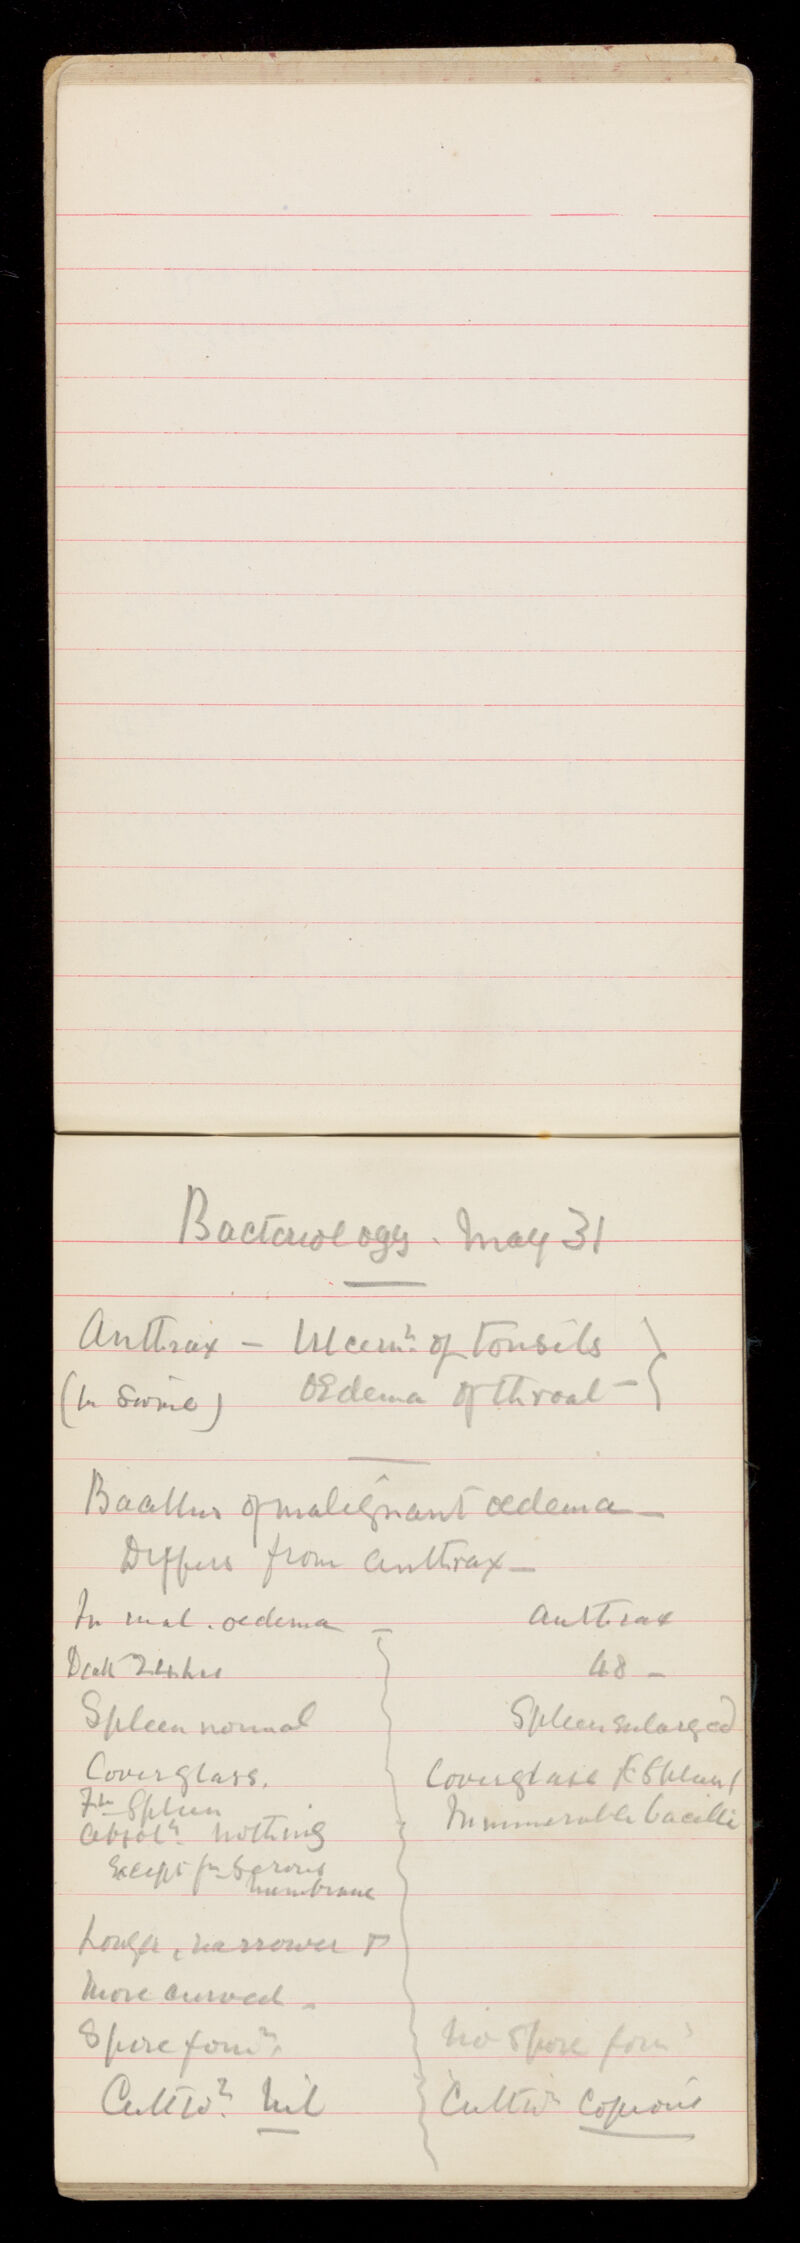 Bacteriology. May 31
Anthrax – Ulcern. of Tonsils
(In Swine) Œdema of throat –
Bacillus of malignant œdema –
Differs from anthrax –
In mal. œdema – Anthrax
Death 24 hrs 48 –
Spleen normal Spleen enlarged
Coverglass. Coverglass Spleen
Fm Spleen Innumerable bacilli
absoly. nothing
Except fm Serous
membrane
Longer, narrower &
more curved –
Spore formn. No Spore formn
Cultivn. Nil Cultivn Copious